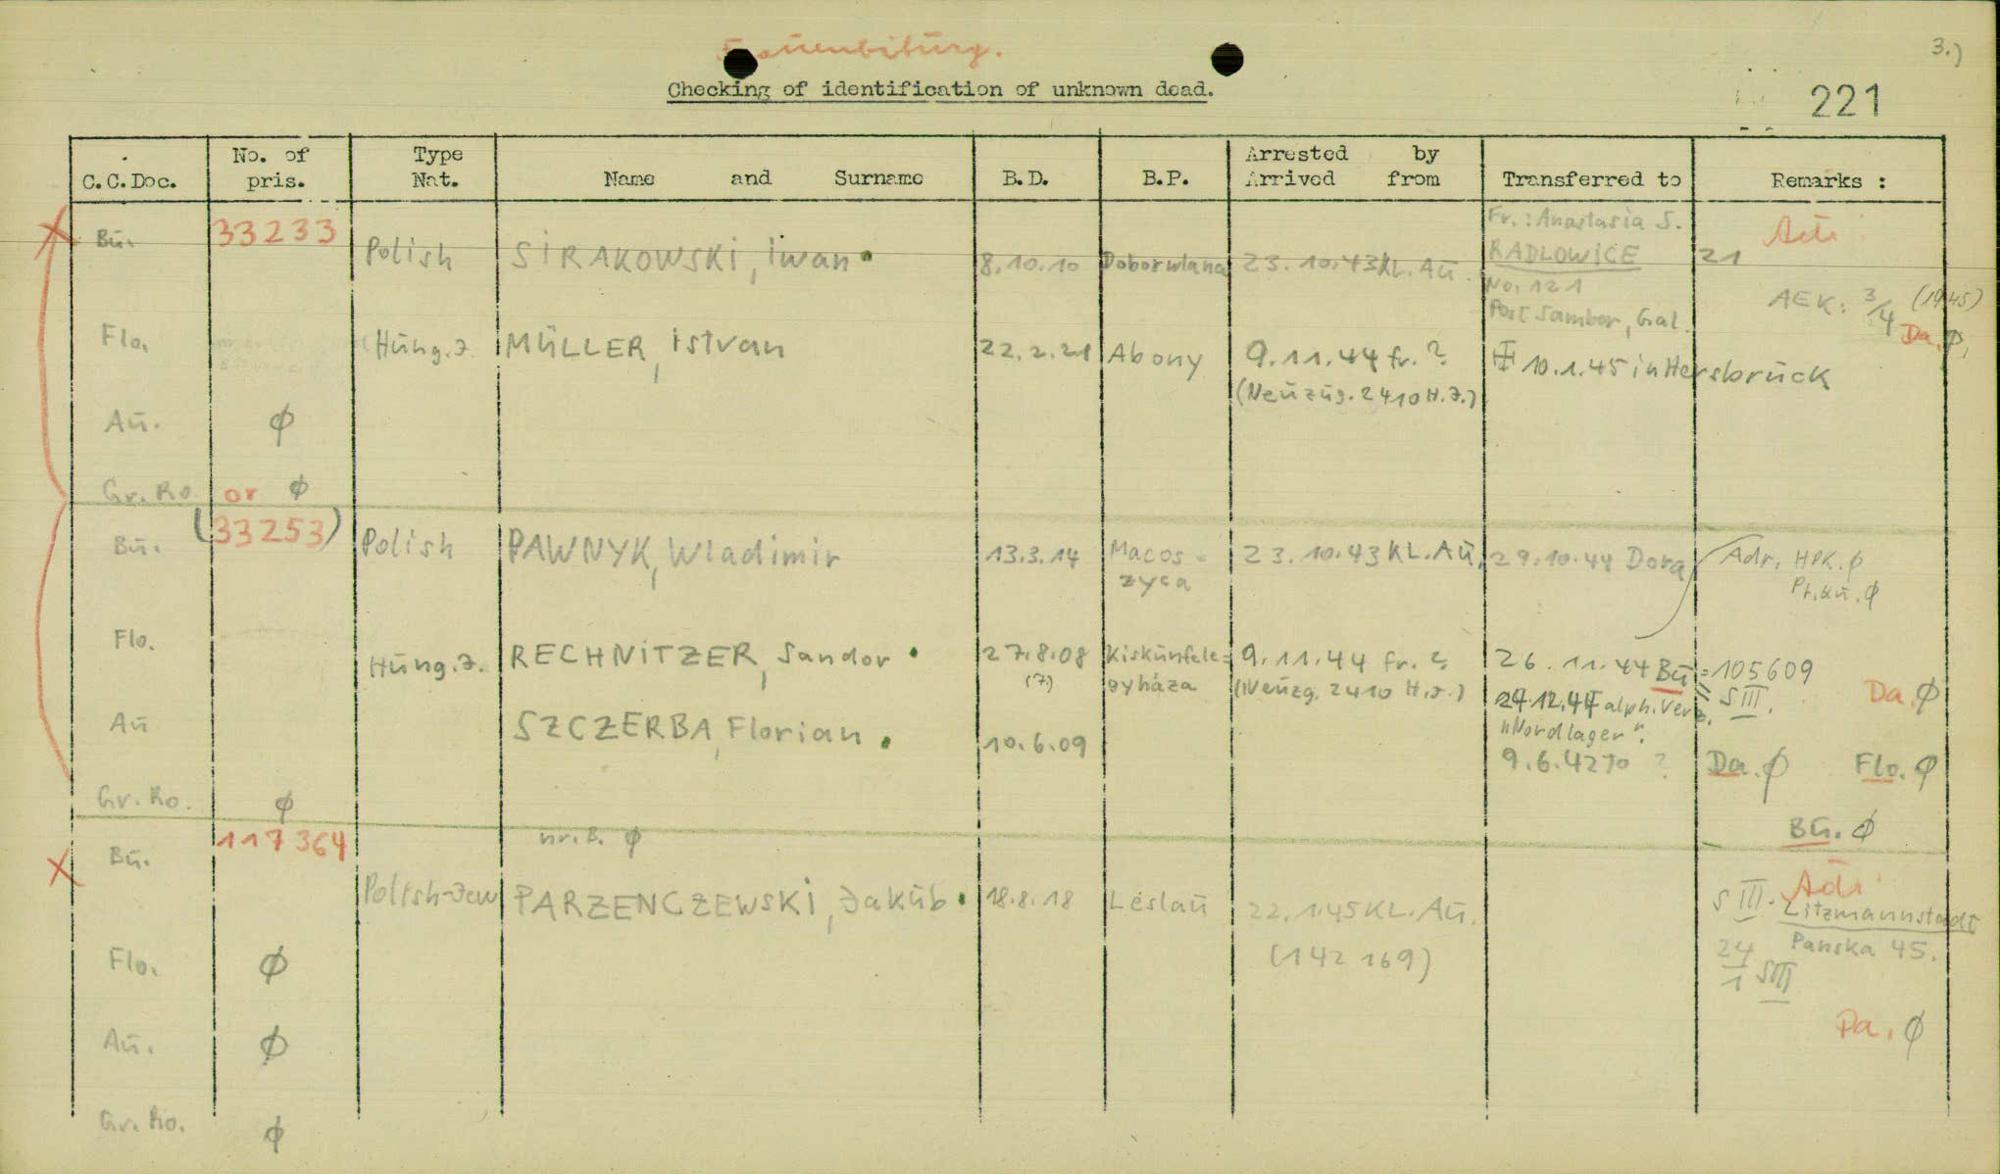 3.)
Checking of identification of unknown dead.
221
C.C.Doc. No. of pris. Type Nat. Name and Surname B.D. B.P. Arrested by Arrived from Transferred to Remarks :
Bū. 33233 Polish SIRAKOWSKI, Iwan 8.10.10 Doborwlana 23.10.43 KL. Aū.
Fr.: Anastasia S.
RADLOWICE
No. 121
Post Sambor, Gal.
21
AEK: 3/4 (1945)
Da. ϕ
Flo. Hūng.J. MÜLLER, Istvan 22.2.21 Abony 9.11.44 fr. ? 10.1.45 in Hersbrūck
(Neūzūg. 2410 H.J.)
Aū. ϕ
Gr. Ro. or ϕ
Bū. (33253) Polish PAWNYK, Wladimir 13.3.14 Macos= 23.10.43 KL. Aū. 29.10.44 Dora Adr. HPK. ϕ
zyca
ϕ
Flo. Hūng.J. RECHNITZER, Sandor 27.8.08 Kiskūnfele= 9.11.44 fr. ? 26.11.44 Bū = 105609
(7.) gyháza (Neūzg. 2410 H.J.) alph. Verz. S III.
"Nordlager".
Da. ϕ
Aū SZCZERBA, Florian 10.6.09 9.6.42 ? Da. ϕ Flo. ϕ
Gr. Ro. ϕ
Bū. ϕ
Bū. 117364 nr. B. ϕ
Polish-Jew PARZENCZEWSKI, Jakūb 18.8.18 Leslaū 22.1.45 KL. Aū. S III. Litzmannstadt
(142 169) Panska 45.
24
1 SIII
Flo. ϕ
Da. ϕ
Aū. ϕ
Gr. Ro. ϕ